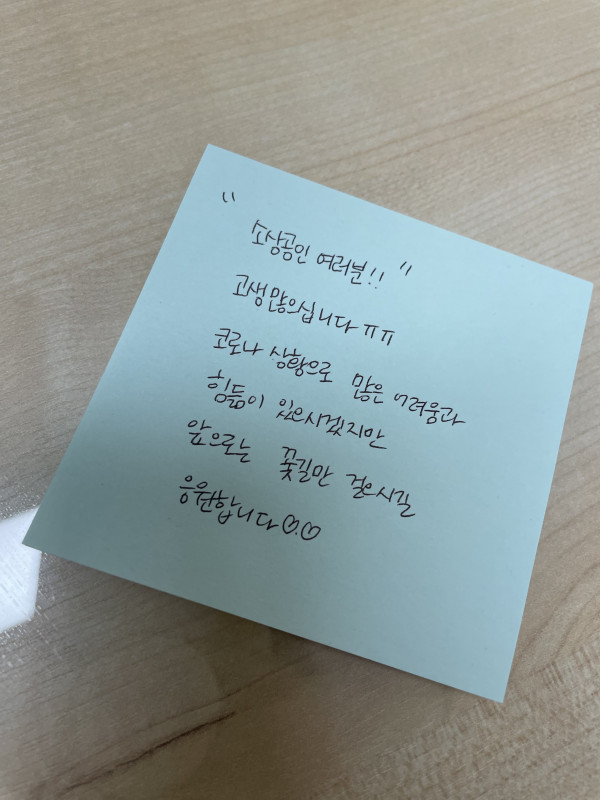 "
소상공인 여러분!! "
고생많으십니다 ㅠㅠ
코로나 상황으로 많은 어려움과
힘듦이 있으시겠지만
앞으로는 꽃길만 걸으시길
응원합니다♡.♡